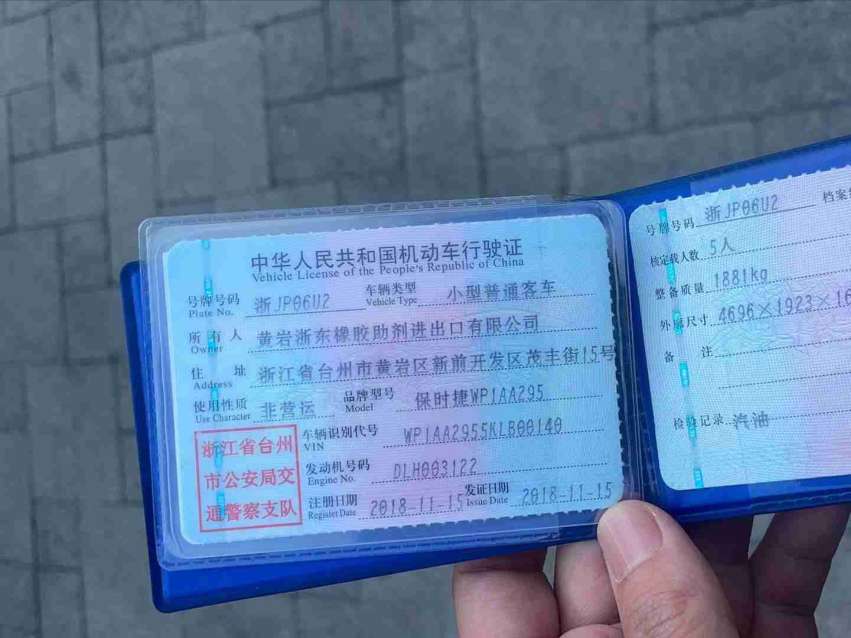 中华人民共和国机动车行驶证
Vehicle License of the People's Republic of China
号牌号码 Plate No. 浙JP06U2 车辆类型 Vehicle Type 小型普通客车
所有人 Owner 黄岩浙东橡胶助剂进出口有限公司
住址 Address 浙江省台州市黄岩区新前开发区茂丰街15号
使用性质 Use Character 非营运 品牌型号 Model 保时捷WP1AA295
车辆识别代号 VIN WP1AA2955KLB00140
发动机号码 Engine No. DLH003122
注册日期 Register Date 2018-11-15 发证日期 Issue Date 2018-11-15
浙江省台州
市公安局交
通警察支队
号牌号码 浙JP06U2 档案
核定载人数 5人
整备质量 1881kg
外廓尺寸 4696×1923×16
备注
检验记录 汽油